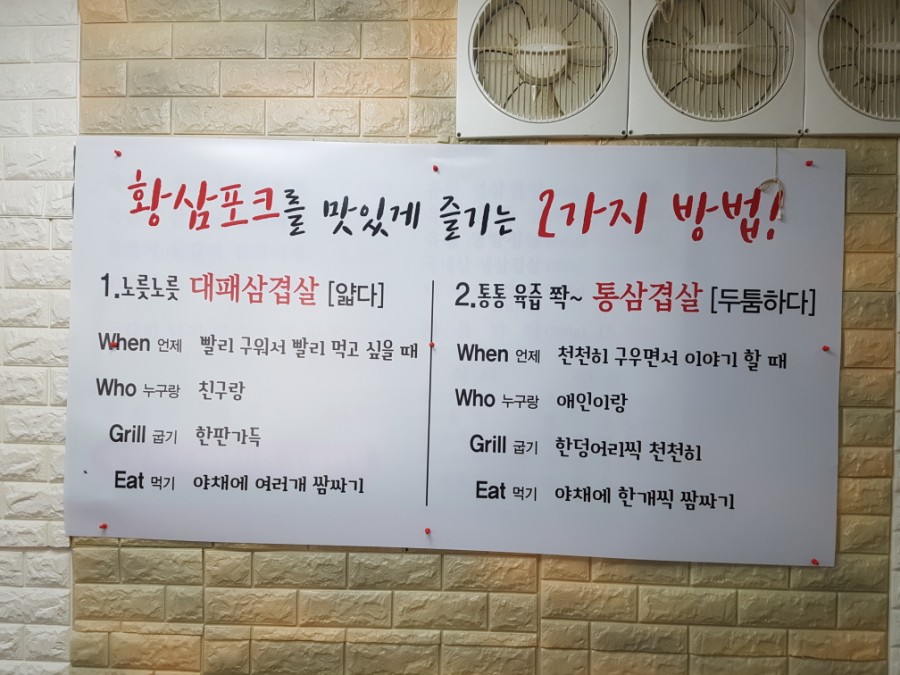 황삼포크를 맛있게 즐기는 2가지 방법!
1.노릇노릇 대패삼겹살 [얇다]
When 언제 빨리 구워서 빨리 먹고 싶을 때
Who 누구랑 친구랑
Grill 굽기 한판가득
Eat 먹기 야채에 여러개 쌈싸기
2.통통 육즙 쫙~ 통삼겹살 [두툼하다]
When 언제 천천히 구우면서 이야기 할 때
Who 누구랑 애인이랑
Grill 굽기 한덩어리씩 천천히
Eat 먹기 야채에 한개씩 쌈싸기